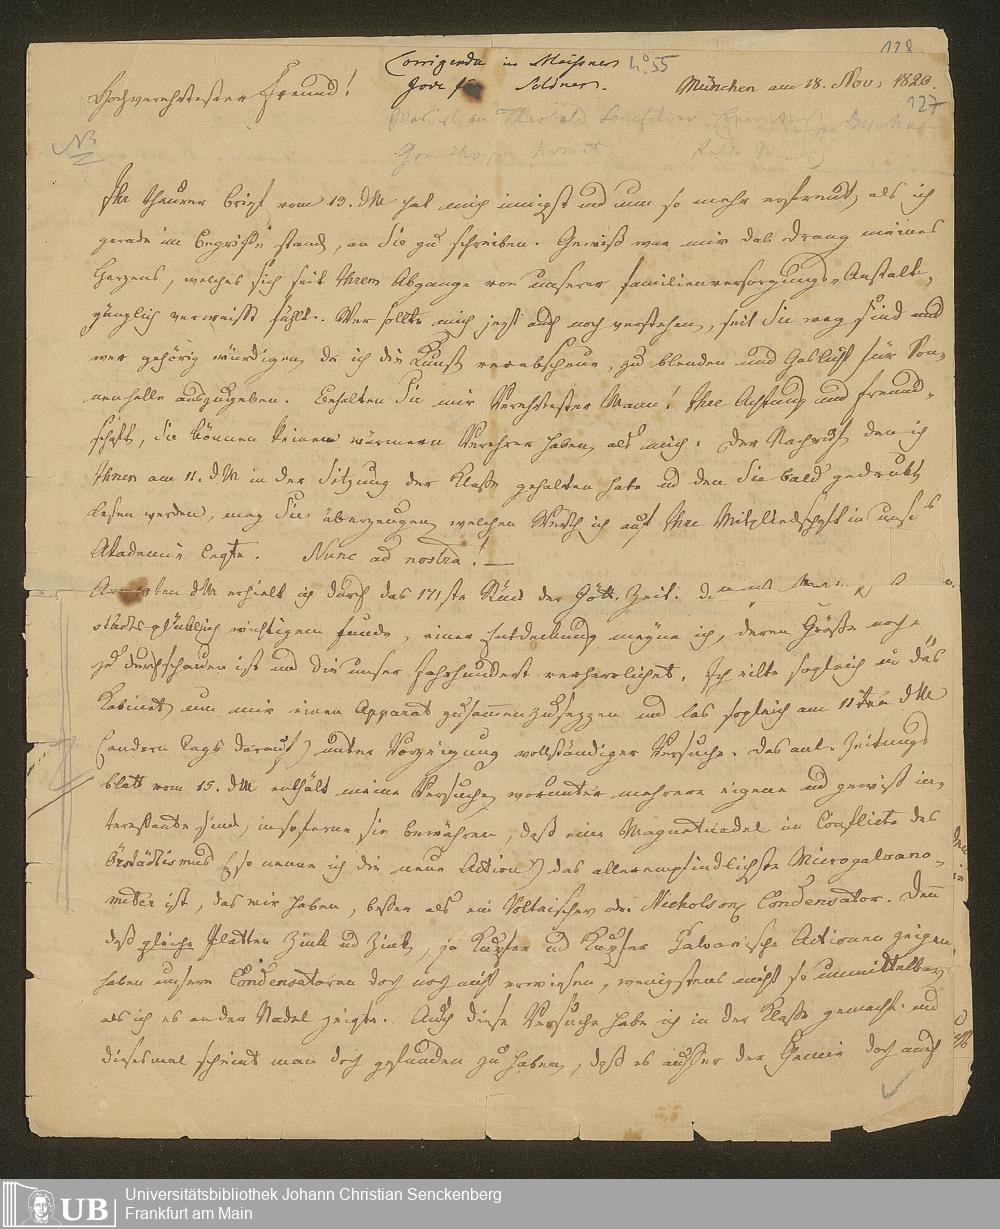 118
Corrigenda in Meißners No 55
Hochverehrtester Freund! Jove Soldner. München am 18. Nov. 1820.
127
NB
Ihr theurer Brief vom 13. dM hat mich innigst und um so mehr erfreut, als ich
gerade im Begriffe stand, an Sie zu schreiben. Gewiß war mir das Drang meines
Herzens, welches sich seit Ihrem Abgange von unserer Familienversorgungs-Anstalt,
gänzlich verwaist fühlt. Wer sollte mich jezt auch noch verstehen, seit Sie weg sind und
wer gehörig würdigen, da ich die Kunst verabscheue, zu blenden und Gaslicht für Son-
nenhelle auszugeben. Erhalten Sie mir Verehrtester Mann! Ihre Achtung und Freund-
schaft, Sie können keinen wärmern Verehrer haben, als mich. Der Nachruf, den ich
Ihnen am 11. dM in der Sitzung der Klasse gehalten habe und den Sie bald gedrukt
lesen werden, mag Sie überzeugen, welchen Werth ich auf Ihre Mitgliedschaft in unsr
Akademie legte. Nunc ad nostra! —
dM erhielt ich durch das 171ste Stück der Gött. Zeit.
glücklich wichtigem Funde, einer Entdeckung meyne ich, deren Größe noch
zu durchschauen ist und die unser Jahrhundert verherrlichet. Ich eilte sogleich in das
Kabinet, um mir einen Apparat zusammenzusezzen und las sogleich am 11ten dM
(andern Tags darauf) unter Vorzeigung vollständiger Versuche. Das Zeitungs
blatt vom 15. dM enthält meine Versuche, worunter mehrere eigene und gewiß in-
teressante sind, insoferne sie bewähren, daß eine Magnetnadel im Conflicte des
Örstädtismus (so nenne ich die neue Action) das allerempfindlichste Microgalvano-
meter ist, das wir haben, besser als ein Voltaischer oder Nicholsons Condensator. Denn
daß gleiche Platten Zink und Zink, ja Kupfer und Kupfer Galvanische Actionen zeigen,
haben unsere Condensatoren doch noch nicht erwiesen, wenigstens nicht so unmittelbar
als ich es an der Nadel zeigte. Auch diese Versuche habe ich in der Klasse gemacht. und
diesesmal scheint man doch gefunden zu haben, daß es ausser der Chemie doch auch
UB Universitätsbibliothek Johann Christian Senckenberg
Frankfurt am Main